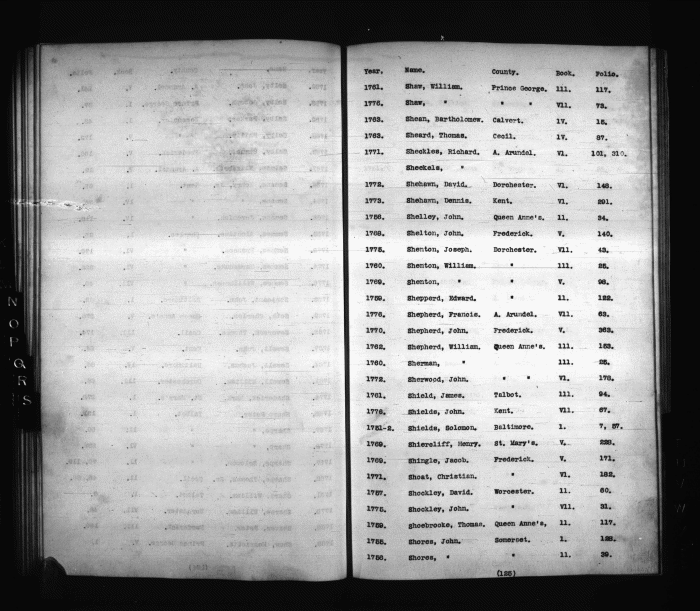 Year. Name. County. Book. Folio.
1761. Shaw, William. Prince George. 111. 117.
1776. Shaw, " " " V11. 73.
1763. Shean, Bartholomew. Calvert. 1V. 15.
1763. Sheard, Thomas. Cecil. 1V. 87.
1771. Sheckles, Richard. A. Arundel. V1. 101, 310.
Sheckels, "
1772. Shehawn, David. Dorchester. V1. 146.
1773. Shehawn, Dennis. Kent. V1. 291.
1756. Shelley, John. Queen Anne's. 11. 34.
1768. Shelton, John. Frederick. V. 140.
1775. Shenton, Joseph. Dorchester. V11. 43.
1760. Shenton, William. " 111. 25.
1769. Shenton, " " V. 96.
1759. Shepperd, Edward. " 11. 122.
1776. Shepherd, Francis. A. Arundel. V11. 63.
1770. Shepherd, John. Frederick. V. 362.
1762. Shepherd, William. Queen Anne's. 111. 163.
1760. Sherman, " 111. 25.
1772. Sherwood, John. " " V1. 176.
1761. Shield, James. Talbot. 111. 94.
1776. Shields, John. Kent. V11. 67.
1751-2. Shields, Solomon. Baltimore. 1. 7, 57.
1769. Shiercliff, Henry. St. Mary's. V. 228.
1769. Shingle, Jacob. Frederick. V. 171.
1771. Shoat, Christian. " V1. 182.
1757. Shockley, David. Worcester. 11. 60.
1775. Shockley, John. " V11. 31.
1759. Shoebrooke, Thomas. Queen Anne's, 11. 117.
1755. Shores, John. Somerset. 1. 128.
1756. Shores, " " 11. 39.
(125)
N
O P
Q R
S